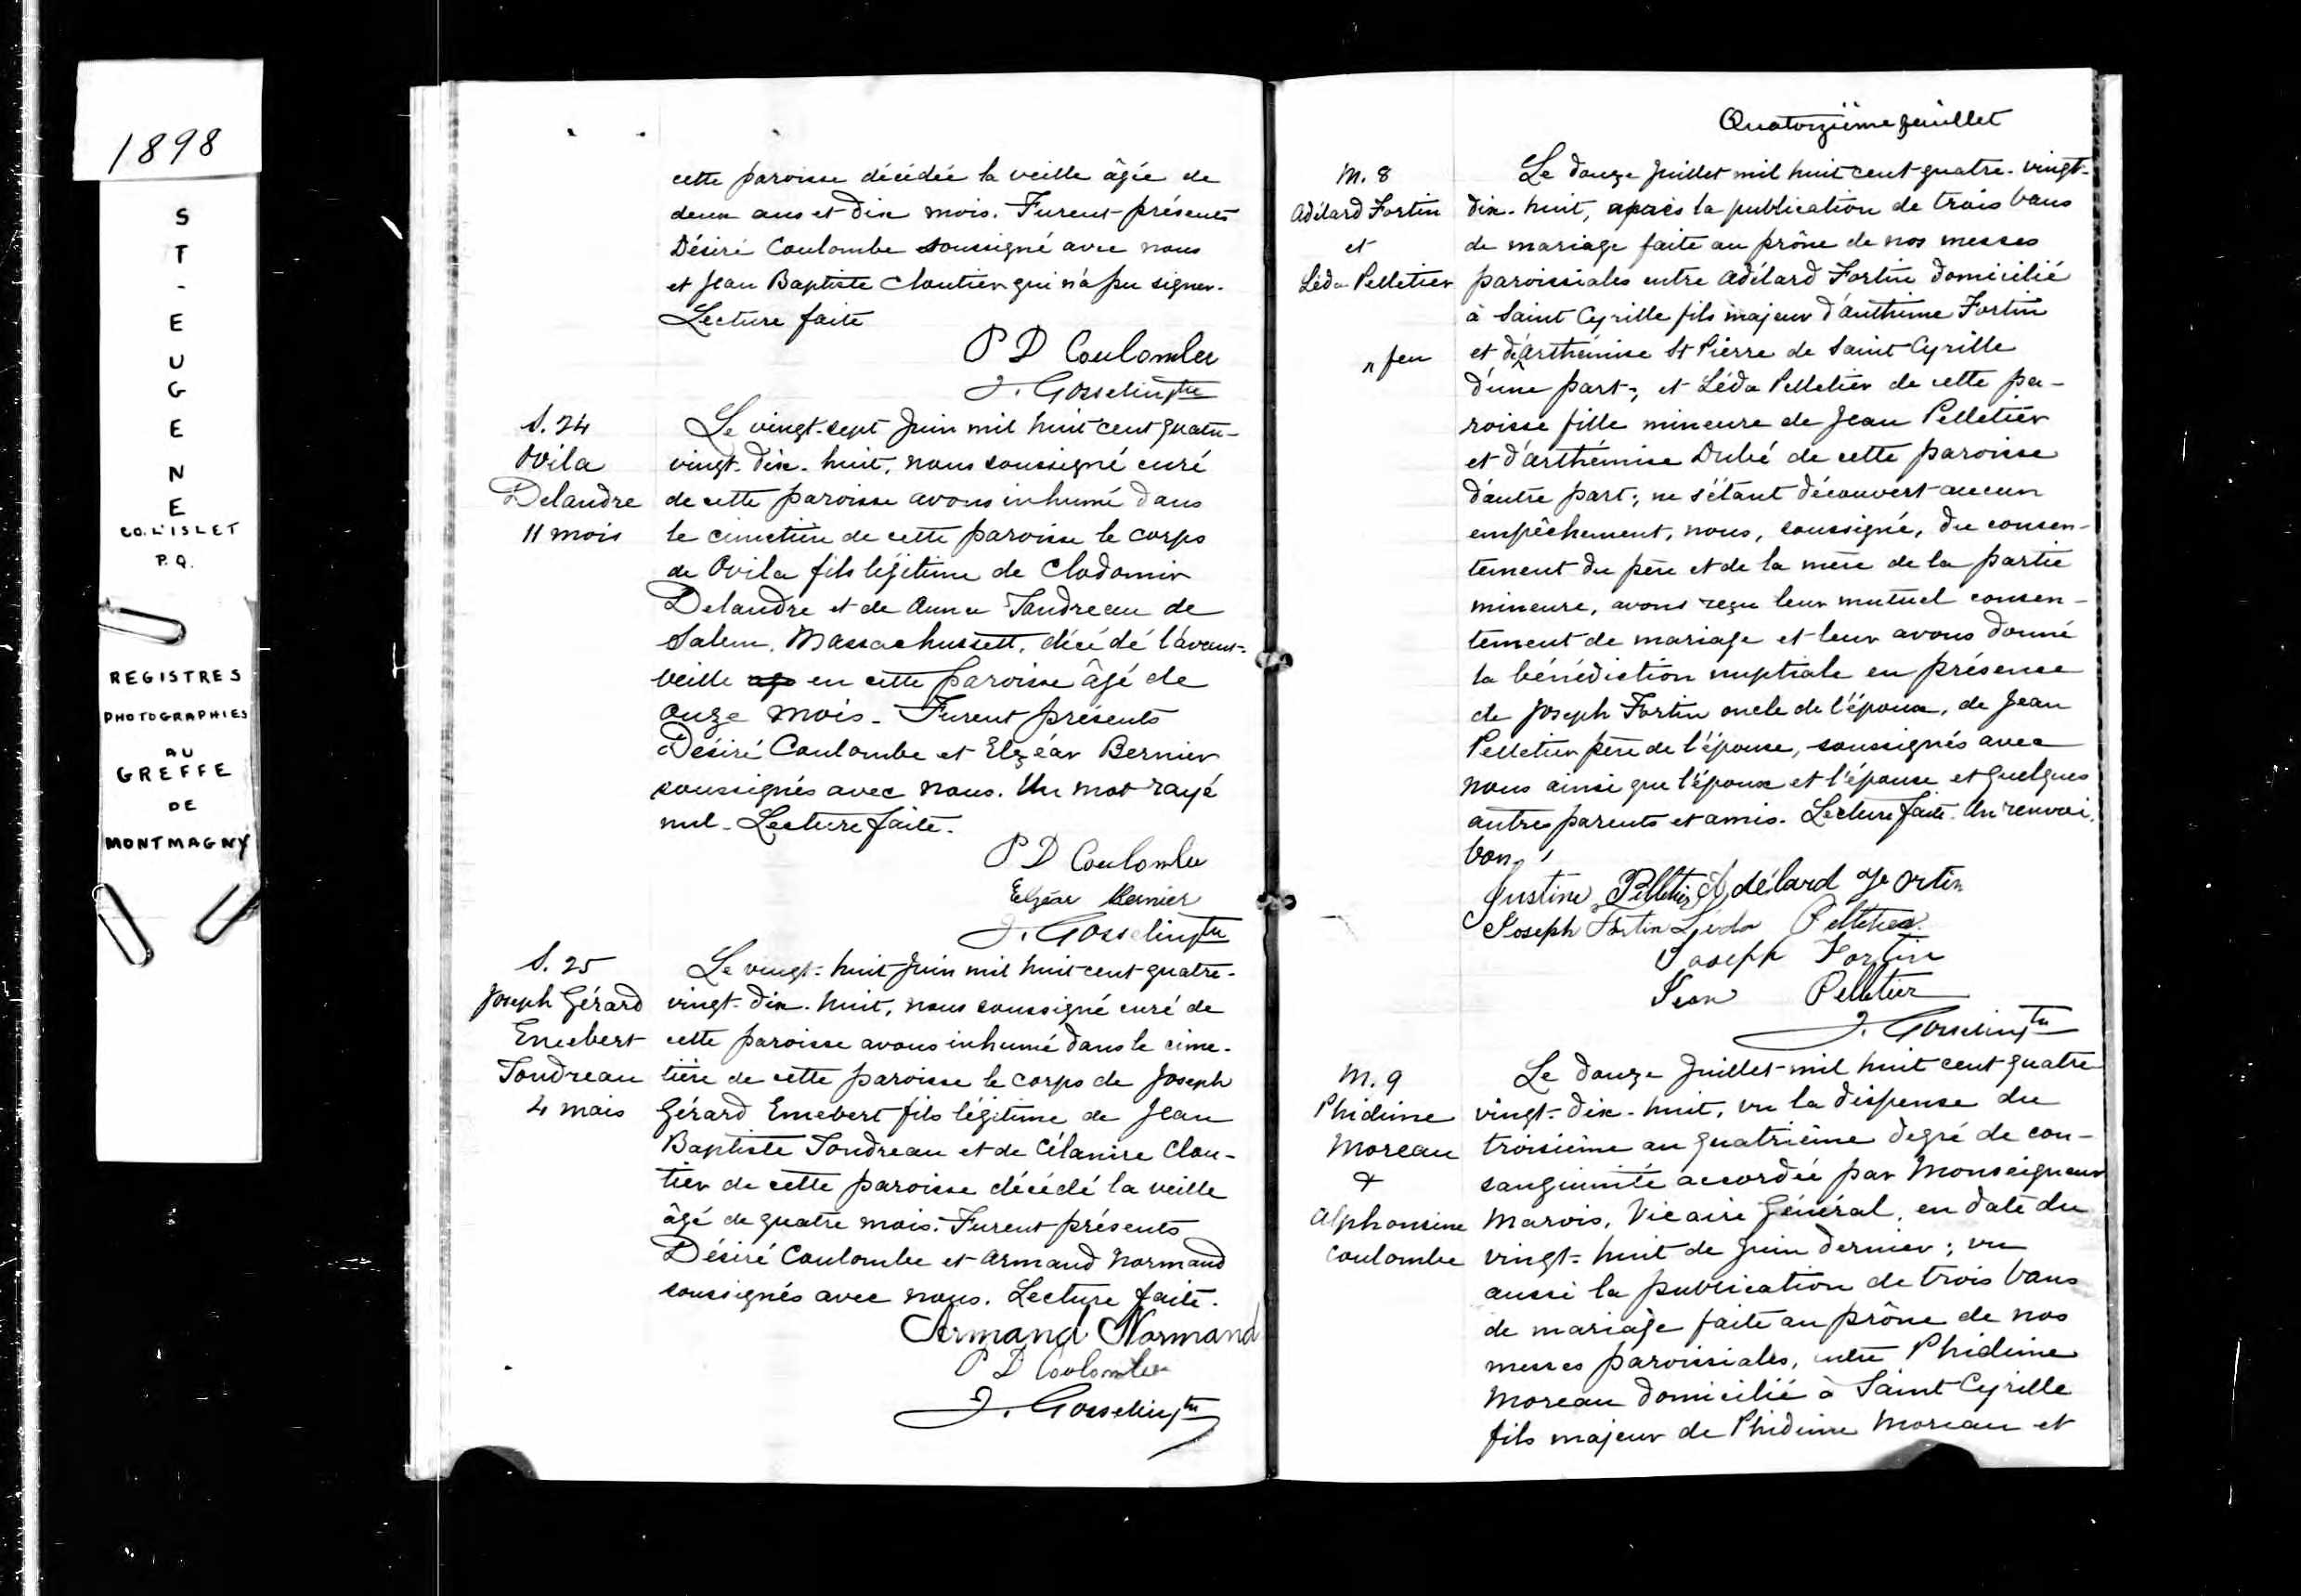 1898
S
T
-
E
U
G
E
N
E
CO. L'ISLET
P.Q.
REGISTRES
PHOTOGRAPHIES
AU
GREFFE
DE
MONTMAGNY
cette paroisse décédée la veille âgée de
deux ans et dix mois. Furent présents
Désiré Coulombe soussigné avec nous
et Jean Baptiste Cloutier qui n'a pu signer.
Lecture faite
P D Coulombe
J. Gosselin ptre
S. 24
Ovila
Delandre
11 mois
Le vingt-sept Juin mil huit cent quatre-
vingt-dix-huit, nous soussigné curé
de cette paroisse avons inhumé dans
le cimetière de cette paroisse le corps
de Ovila fils légitime de Clodomir
Delandre et de Anna Tondreau de
Salem, Massachussett, décédé l'avant-
veille en cette paroisse âgé de
onze mois. Furent présents
Désiré Coulombe et Elzéar Bernier
soussignés avec nous. Un mot rayé
nul. Lecture faite.
P D Coulombe
Elzéar Bernier
J. Gosselin ptre
S. 25
Joseph Gérard
Emebert
Tondreau
4 mois
Le vingt-huit Juin mil huit cent quatre-
vingt-dix-huit, nous soussigné curé de
cette paroisse avons inhumé dans le cime-
tière de cette paroisse le corps de Joseph
Gérard Emebert fils légitime de Jean
Baptiste Tondreau et de Célanire Clou-
tier de cette paroisse décédé la veille
âgé de quatre mois. Furent présents
Désiré Coulombe et Armand Normand
soussignés avec nous. Lecture faite.
Armand Normand
P D Coulombe
J. Gosselin ptre
Quatorzième feuillet
M. 8
Adélard Fortin
et
Léda Pelletier
Le douze Juillet mil huit cent quatre-vingt-
dix-huit, après la publication de trois bans
de mariage faite au prône de nos messes
paroissiales entre Adélard Fortin domicilié
à Saint Cyrille fils majeur d'Anthime Fortin
^ feu
et d'^Arthémise St Pierre de Saint Cyrille
d'une part; et Léda Pelletier de cette pa-
roisse fille mineure de Jean Pelletier
et d'Arthémise Dubé de cette paroisse
d'autre part; ne s'étant découvert aucun
empêchement, nous, soussigné, du consen-
tement du père et de la mère de la partie
mineure, avons reçu leur mutuel consen-
tement de mariage et leur avons donné
la bénédiction nuptiale en présence
de Joseph Fortin oncle de l'époux, de Jean
Pelletier père de l'épouse, soussignés avec
nous ainsi que l'époux et l'épouse et quelques
autres parents et amis. Lecture faite. Un renvoi
bon.
Justine Pelletier Adélard Fortin
Joseph Fortin Léda Pelletier
Joseph Fortin
Jean Pelletier
J. Gosselin ptre
M. 9
Phidime
Moreau
&
Alphonsine
Coulombe
Le douze Juillet mil huit cent quatre
vingt-dix-huit, vu la dispense du
troisième au quatrième degré de con-
sanguinité accordée par Monseigneur
Marois, Vicaire Général, en date du
vingt-huit de Juin dernier; vu
aussi la publication de trois bans
de mariage faite au prône de nos
messes paroissiales, entre Phidime
Moreau domicilié à Saint Cyrille
fils majeur de Phidime Moreau et